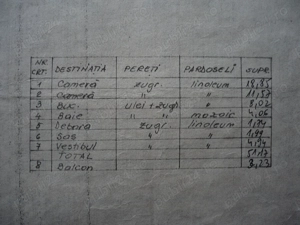 NR. CRT. DESTINAȚIA PEREȚI PARDOSELI SUPR
1 Cameră zugr. linoleum 18,85
2 Cameră " " 11,57
3 Buc. ulei + zugr. " 8,02
4 Baie " " mozaic 4,06
5 Debara zugr. linoleum 1,74
6 Sas " " 1,99
7 Vestibul " " 4,94
TOTAL 51,17
8 Balcon 3,23